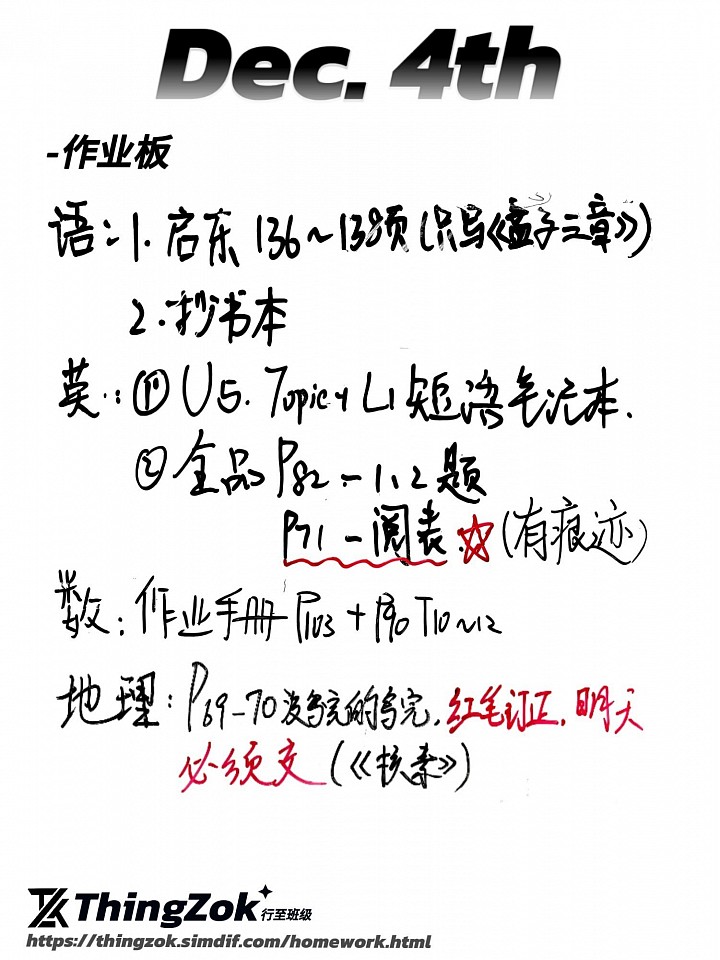 Dec. 4th
-作业板
语：1. 启东 136~138页（只写《孟子三章》）
2. 抄书本
英：① U5. Topic1 L1 短语笔记本.
② 全品 P82 - 1、2 题
P71 - 阅表 ☆（有痕迹）
数：作业手册 P103 + P90 T10~12
地理：P69-70 没写完的写完. 红笔订正. 明天
必须交（《核素》）
ThingZok 行至班级
https://thingzok.simdif.com/homework.html